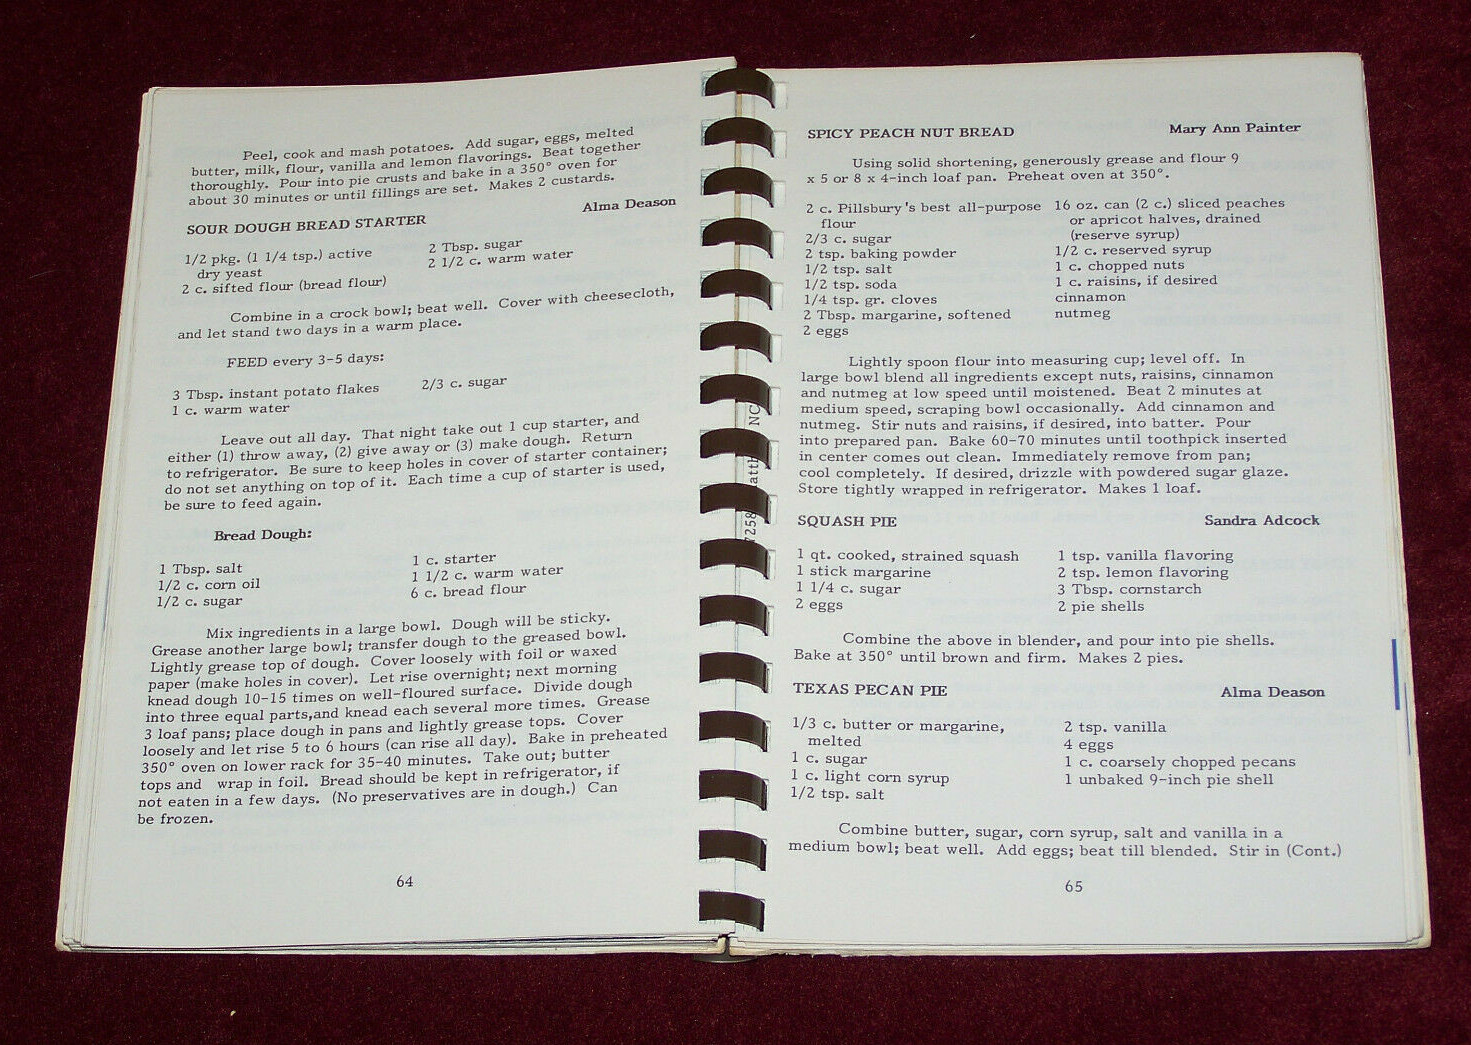 Peel, cook and mash potatoes. Add sugar, eggs, melted
butter, milk, flour, vanilla and lemon flavorings. Beat together
thoroughly. Pour into pie crusts and bake in a 350° oven for
about 30 minutes or until fillings are set. Makes 2 custards.
SOUR DOUGH BREAD STARTER Alma Deason
1/2 pkg. (1 1/4 tsp.) active
dry yeast
2 c. sifted flour (bread flour)
2 Tbsp. sugar
2 1/2 c. warm water
Combine in a crock bowl; beat well. Cover with cheesecloth,
and let stand two days in a warm place.
FEED every 3-5 days:
3 Tbsp. instant potato flakes
1 c. warm water
2/3 c. sugar
Leave out all day. That night take out 1 cup starter, and
either (1) throw away, (2) give away or (3) make dough. Return
to refrigerator. Be sure to keep holes in cover of starter container;
do not set anything on top of it. Each time a cup of starter is used,
be sure to feed again.
Bread Dough:
1 Tbsp. salt
1/2 c. corn oil
1/2 c. sugar
1 c. starter
1 1/2 c. warm water
6 c. bread flour
Mix ingredients in a large bowl. Dough will be sticky.
Grease another large bowl; transfer dough to the greased bowl.
Lightly grease top of dough. Cover loosely with foil or waxed
paper (make holes in cover). Let rise overnight; next morning
knead dough 10-15 times on well-floured surface. Divide dough
into three equal parts,and knead each several more times. Grease
3 loaf pans; place dough in pans and lightly grease tops. Cover
loosely and let rise 5 to 6 hours (can rise all day). Bake in preheated
350° oven on lower rack for 35-40 minutes. Take out; butter
tops and wrap in foil. Bread should be kept in refrigerator, if
not eaten in a few days. (No preservatives are in dough.) Can
be frozen.
64
SPICY PEACH NUT BREAD Mary Ann Painter
Using solid shortening, generously grease and flour 9
x 5 or 8 x 4-inch loaf pan. Preheat oven at 350°.
2 c. Pillsbury's best all-purpose
flour
2/3 c. sugar
2 tsp. baking powder
1/2 tsp. salt
1/2 tsp. soda
1/4 tsp. gr. cloves
2 Tbsp. margarine, softened
2 eggs
16 oz. can (2 c.) sliced peaches
or apricot halves, drained
(reserve syrup)
1/2 c. reserved syrup
1 c. chopped nuts
1 c. raisins, if desired
cinnamon
nutmeg
Lightly spoon flour into measuring cup; level off. In
large bowl blend all ingredients except nuts, raisins, cinnamon
and nutmeg at low speed until moistened. Beat 2 minutes at
medium speed, scraping bowl occasionally. Add cinnamon and
nutmeg. Stir nuts and raisins, if desired, into batter. Pour
into prepared pan. Bake 60-70 minutes until toothpick inserted
in center comes out clean. Immediately remove from pan;
cool completely. If desired, drizzle with powdered sugar glaze.
Store tightly wrapped in refrigerator. Makes 1 loaf.
SQUASH PIE Sandra Adcock
1 qt. cooked, strained squash
1 stick margarine
1 1/4 c. sugar
2 eggs
1 tsp. vanilla flavoring
2 tsp. lemon flavoring
3 Tbsp. cornstarch
2 pie shells
Combine the above in blender, and pour into pie shells.
Bake at 350° until brown and firm. Makes 2 pies.
TEXAS PECAN PIE Alma Deason
1/3 c. butter or margarine,
melted
1 c. sugar
1 c. light corn syrup
1/2 tsp. salt
2 tsp. vanilla
4 eggs
1 c. coarsely chopped pecans
1 unbaked 9-inch pie shell
Combine butter, sugar, corn syrup, salt and vanilla in a
medium bowl; beat well. Add eggs; beat till blended. Stir in (Cont.)
65
NC